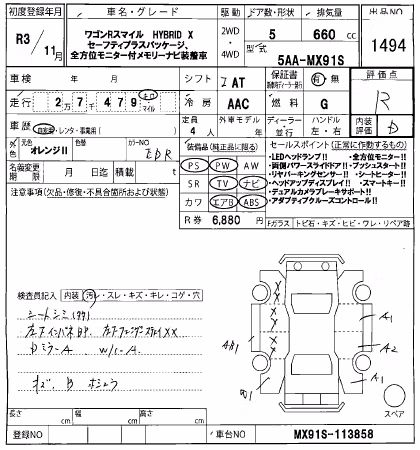 初度登録年月
車名・グレード
駆動
ドア数・形状
排気量
出品NO
R3/11月
ワゴンRスマイル HYBRID X
セーフティプラスパッケージ、
全方位モニター付メモリーナビ装着車
2WD・4WD
5
660 cc
1494
型式
5AA-MX91S
車検 年 月
シフト
IAT
保証書
有・無
評価点
R
走行
2万7千479
キロ
マイル
冷房
AAC
燃料
G
車歴
自家用・レンタ・事業用( )
定員
4人
外車モデル
年
ディーラー・並行
ハンドル
左・右
内装評価
D
外色
元色
オレンジII
色替
カラーNO
装備品(純正品に限る)
セールスポイント(正常に作動するもの)
名義変更期限
月 日迄
積載
t
PS PW AW
SR TV ナビ
カワ エアB ABS
R券 6,880 円
・LEDヘッドランプ!! ・全方位モニター!!
・両側パワースライドドア!! ・プッシュスタート!!
・リヤパーキングセンサー!! ・シートヒーター!!
・ヘッドアップディスプレイ!! ・スマートキー!!
・デュアルカメラブレーキサポート!!
・アダプティブクルーズコントロール!!
注意事項(欠品・修復・不具合箇所および状態)
Fガラス トビ石・キズ・ヒビ・ワレ・リペア跡
検査員記入
内装 汚レ・スレ・キズ・キレ・コゲ・穴
シートシミ
DミラーA W/C-A
キズ B ホシュウ
A1
A2
A1
スペア
長さ cm
幅 cm
高さ cm
登録NO
車台NO
MX91S-113858